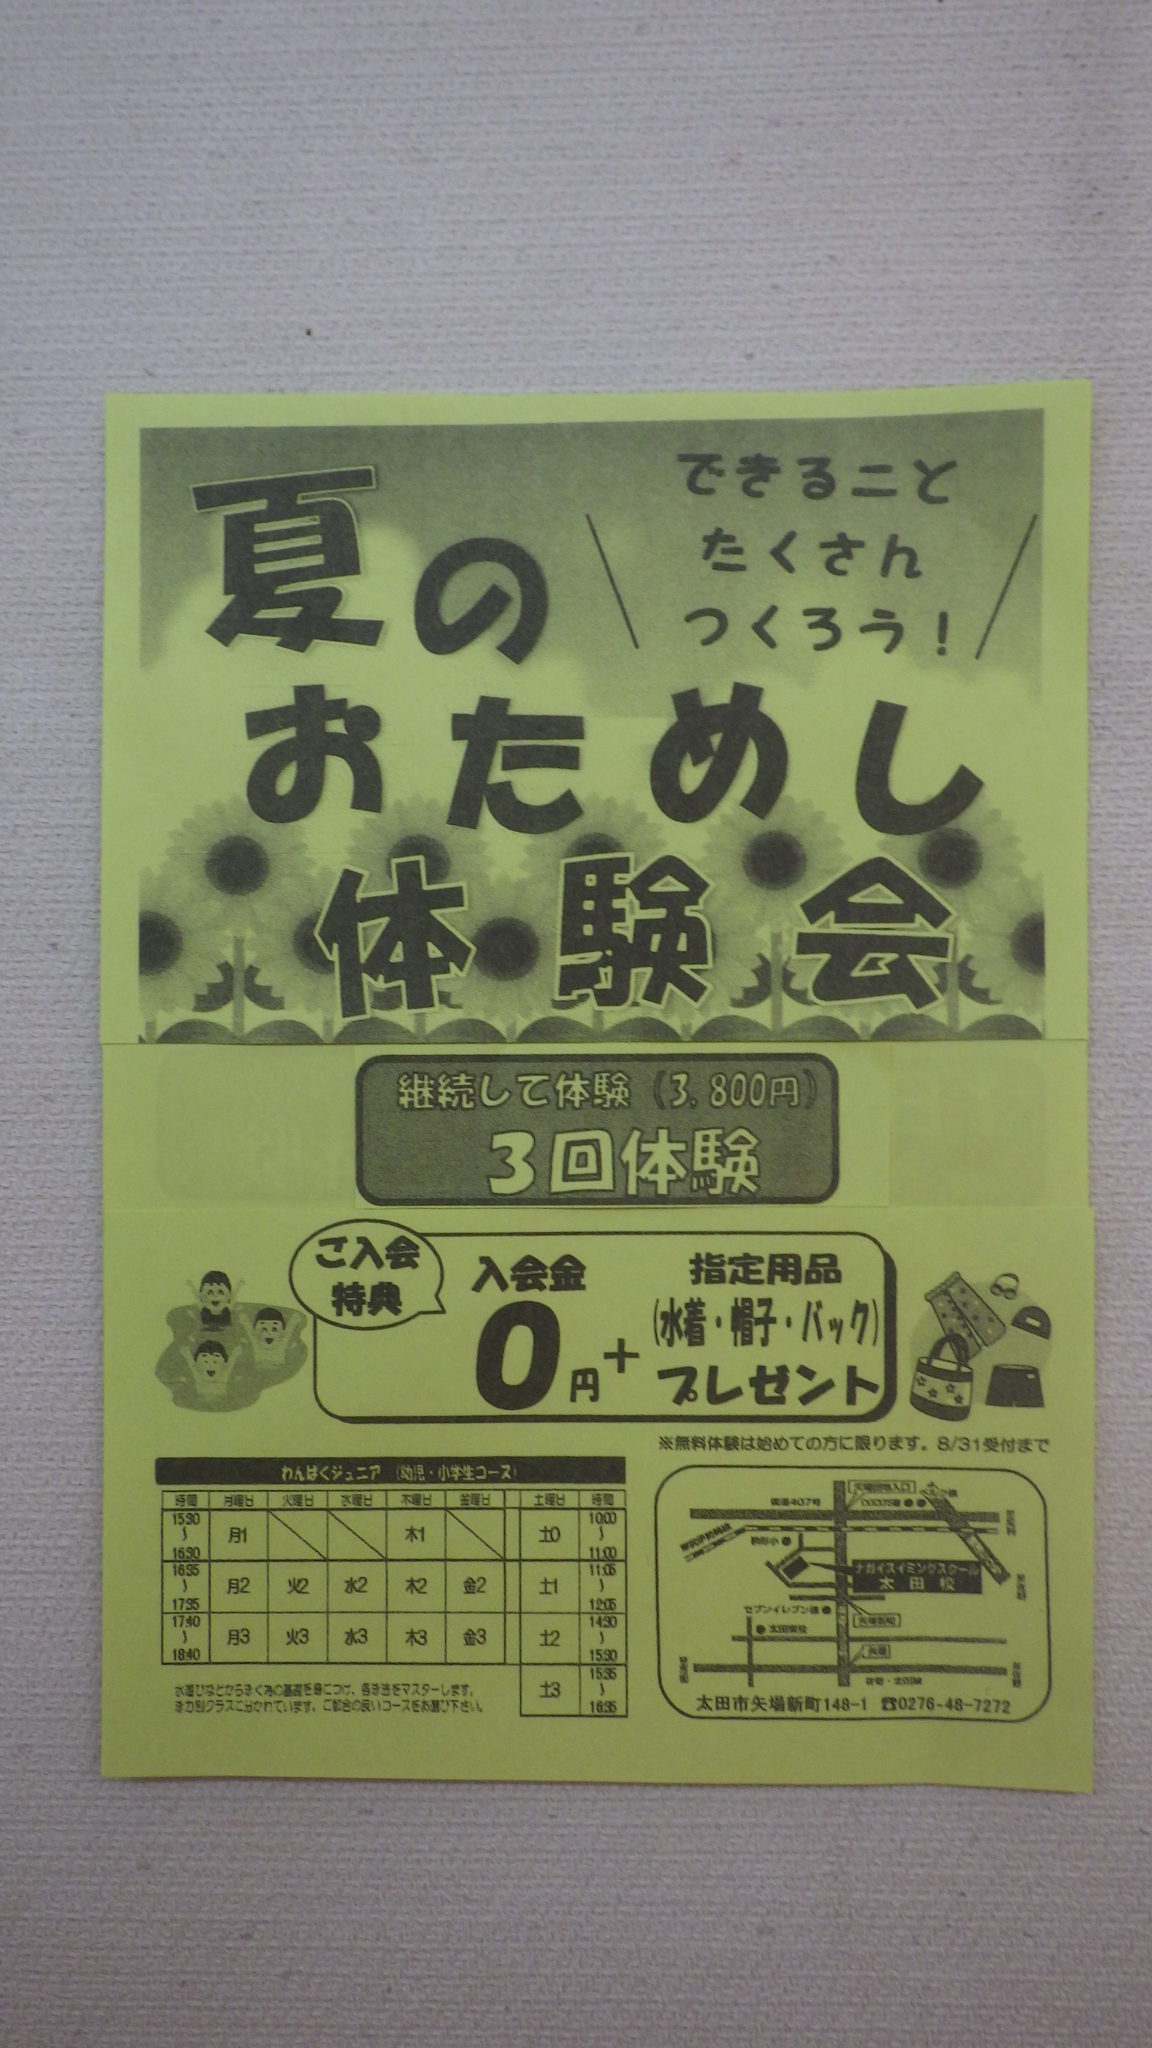 夏の
おためし
体験会
できること
たくさん
つくろう!
継続して体験(3,800円)
3回体験
ご入会
特典
入会金
0円
+
指定用品
(水着・帽子・バック)
プレゼント
※無料体験は始めての方に限ります。8/31受付まで
わんぱくジュニア (幼児・小学生コース)
時間 月曜日 火曜日 水曜日 木曜日 金曜日 土曜日 時間
15:30~16:30 月1 木1 土0 10:00~11:00
16:35~17:35 月2 火2 水2 木2 金2 土1 11:05~12:05
17:40~18:40 月3 火3 水3 木3 金3 土2 14:30~15:30
土3 15:35~16:35
水遊びなどから泳ぐ為の基礎を身につけ、各泳法をマスターします。
泳力別クラスに分かれています。ご都合の良いコースをお選び下さい。
国道407号
ナガイスイミングスクール
太田校
セブンイレブン様
矢場新町
矢場
太田市矢場新町148-1 ☎0276-48-7272